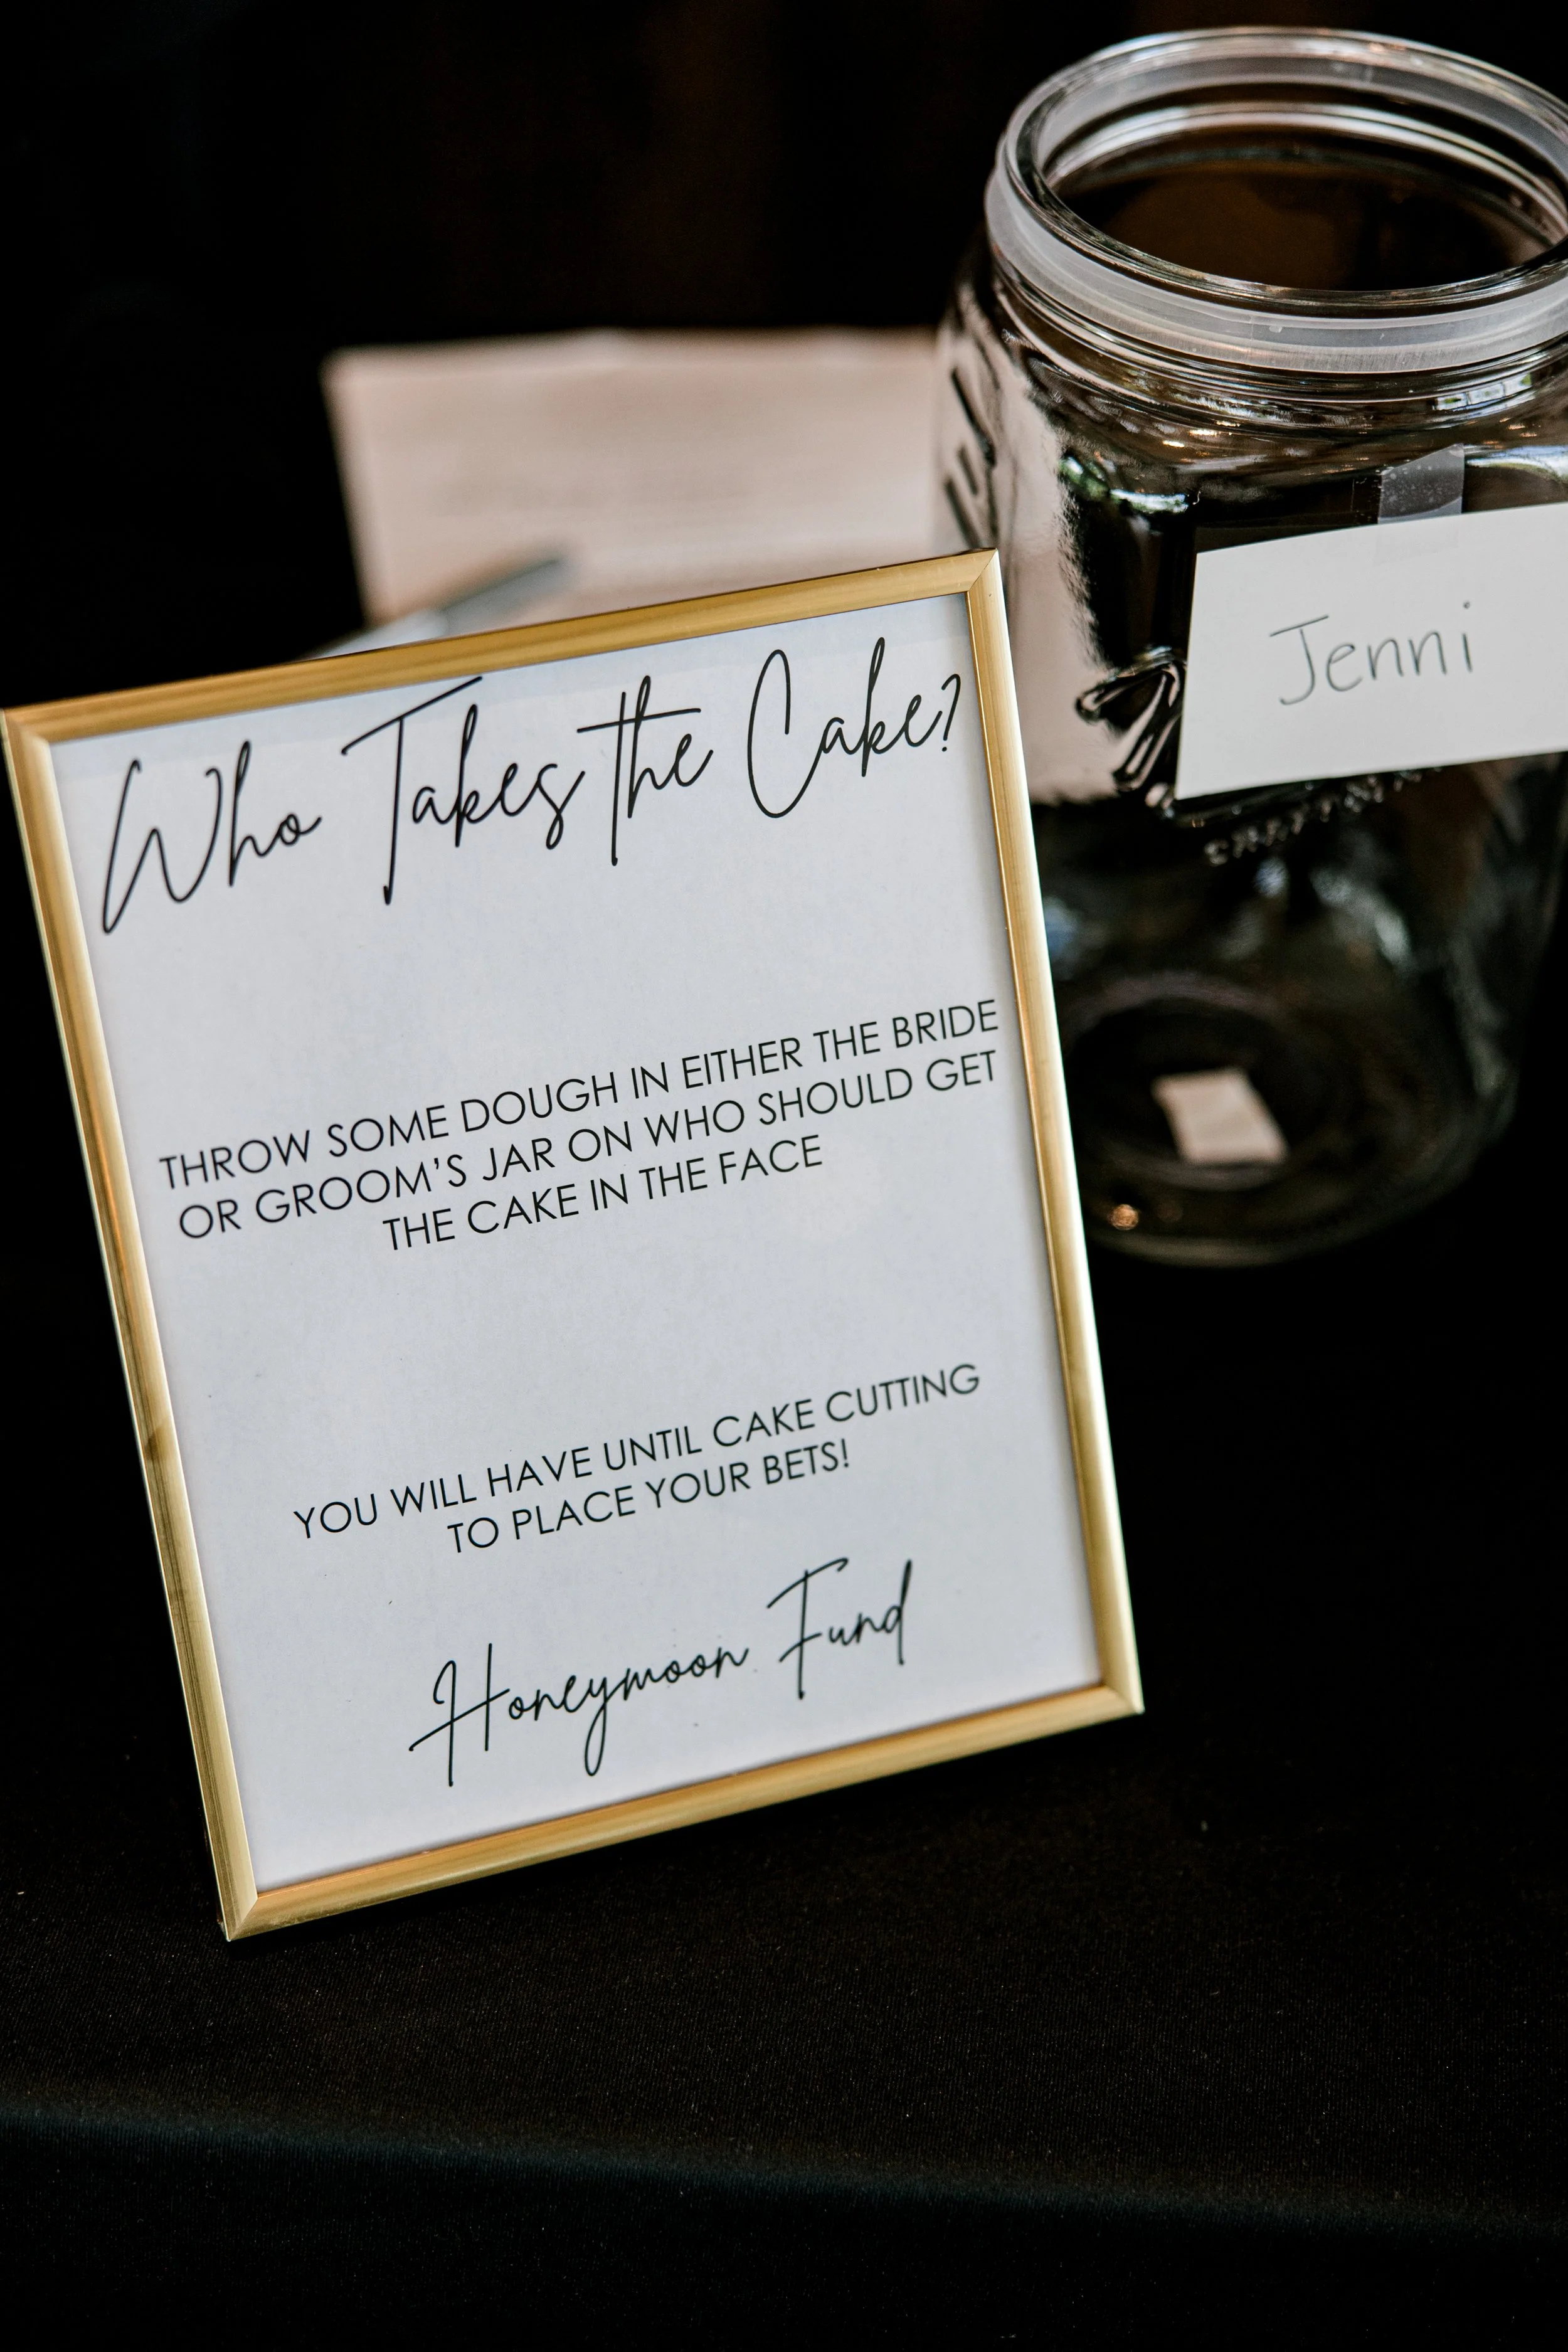 Who Takes the Cake?
THROW SOME DOUGH IN EITHER THE BRIDE
OR GROOM'S JAR ON WHO SHOULD GET
THE CAKE IN THE FACE
YOU WILL HAVE UNTIL CAKE CUTTING
TO PLACE YOUR BETS!
Honeymoon Fund
Jenni